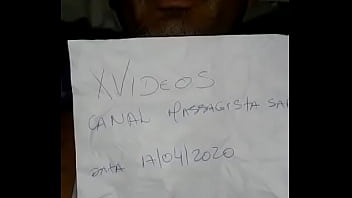 XVIDEOS
CANAL MASSAGISTA
DATA 17/04/2020